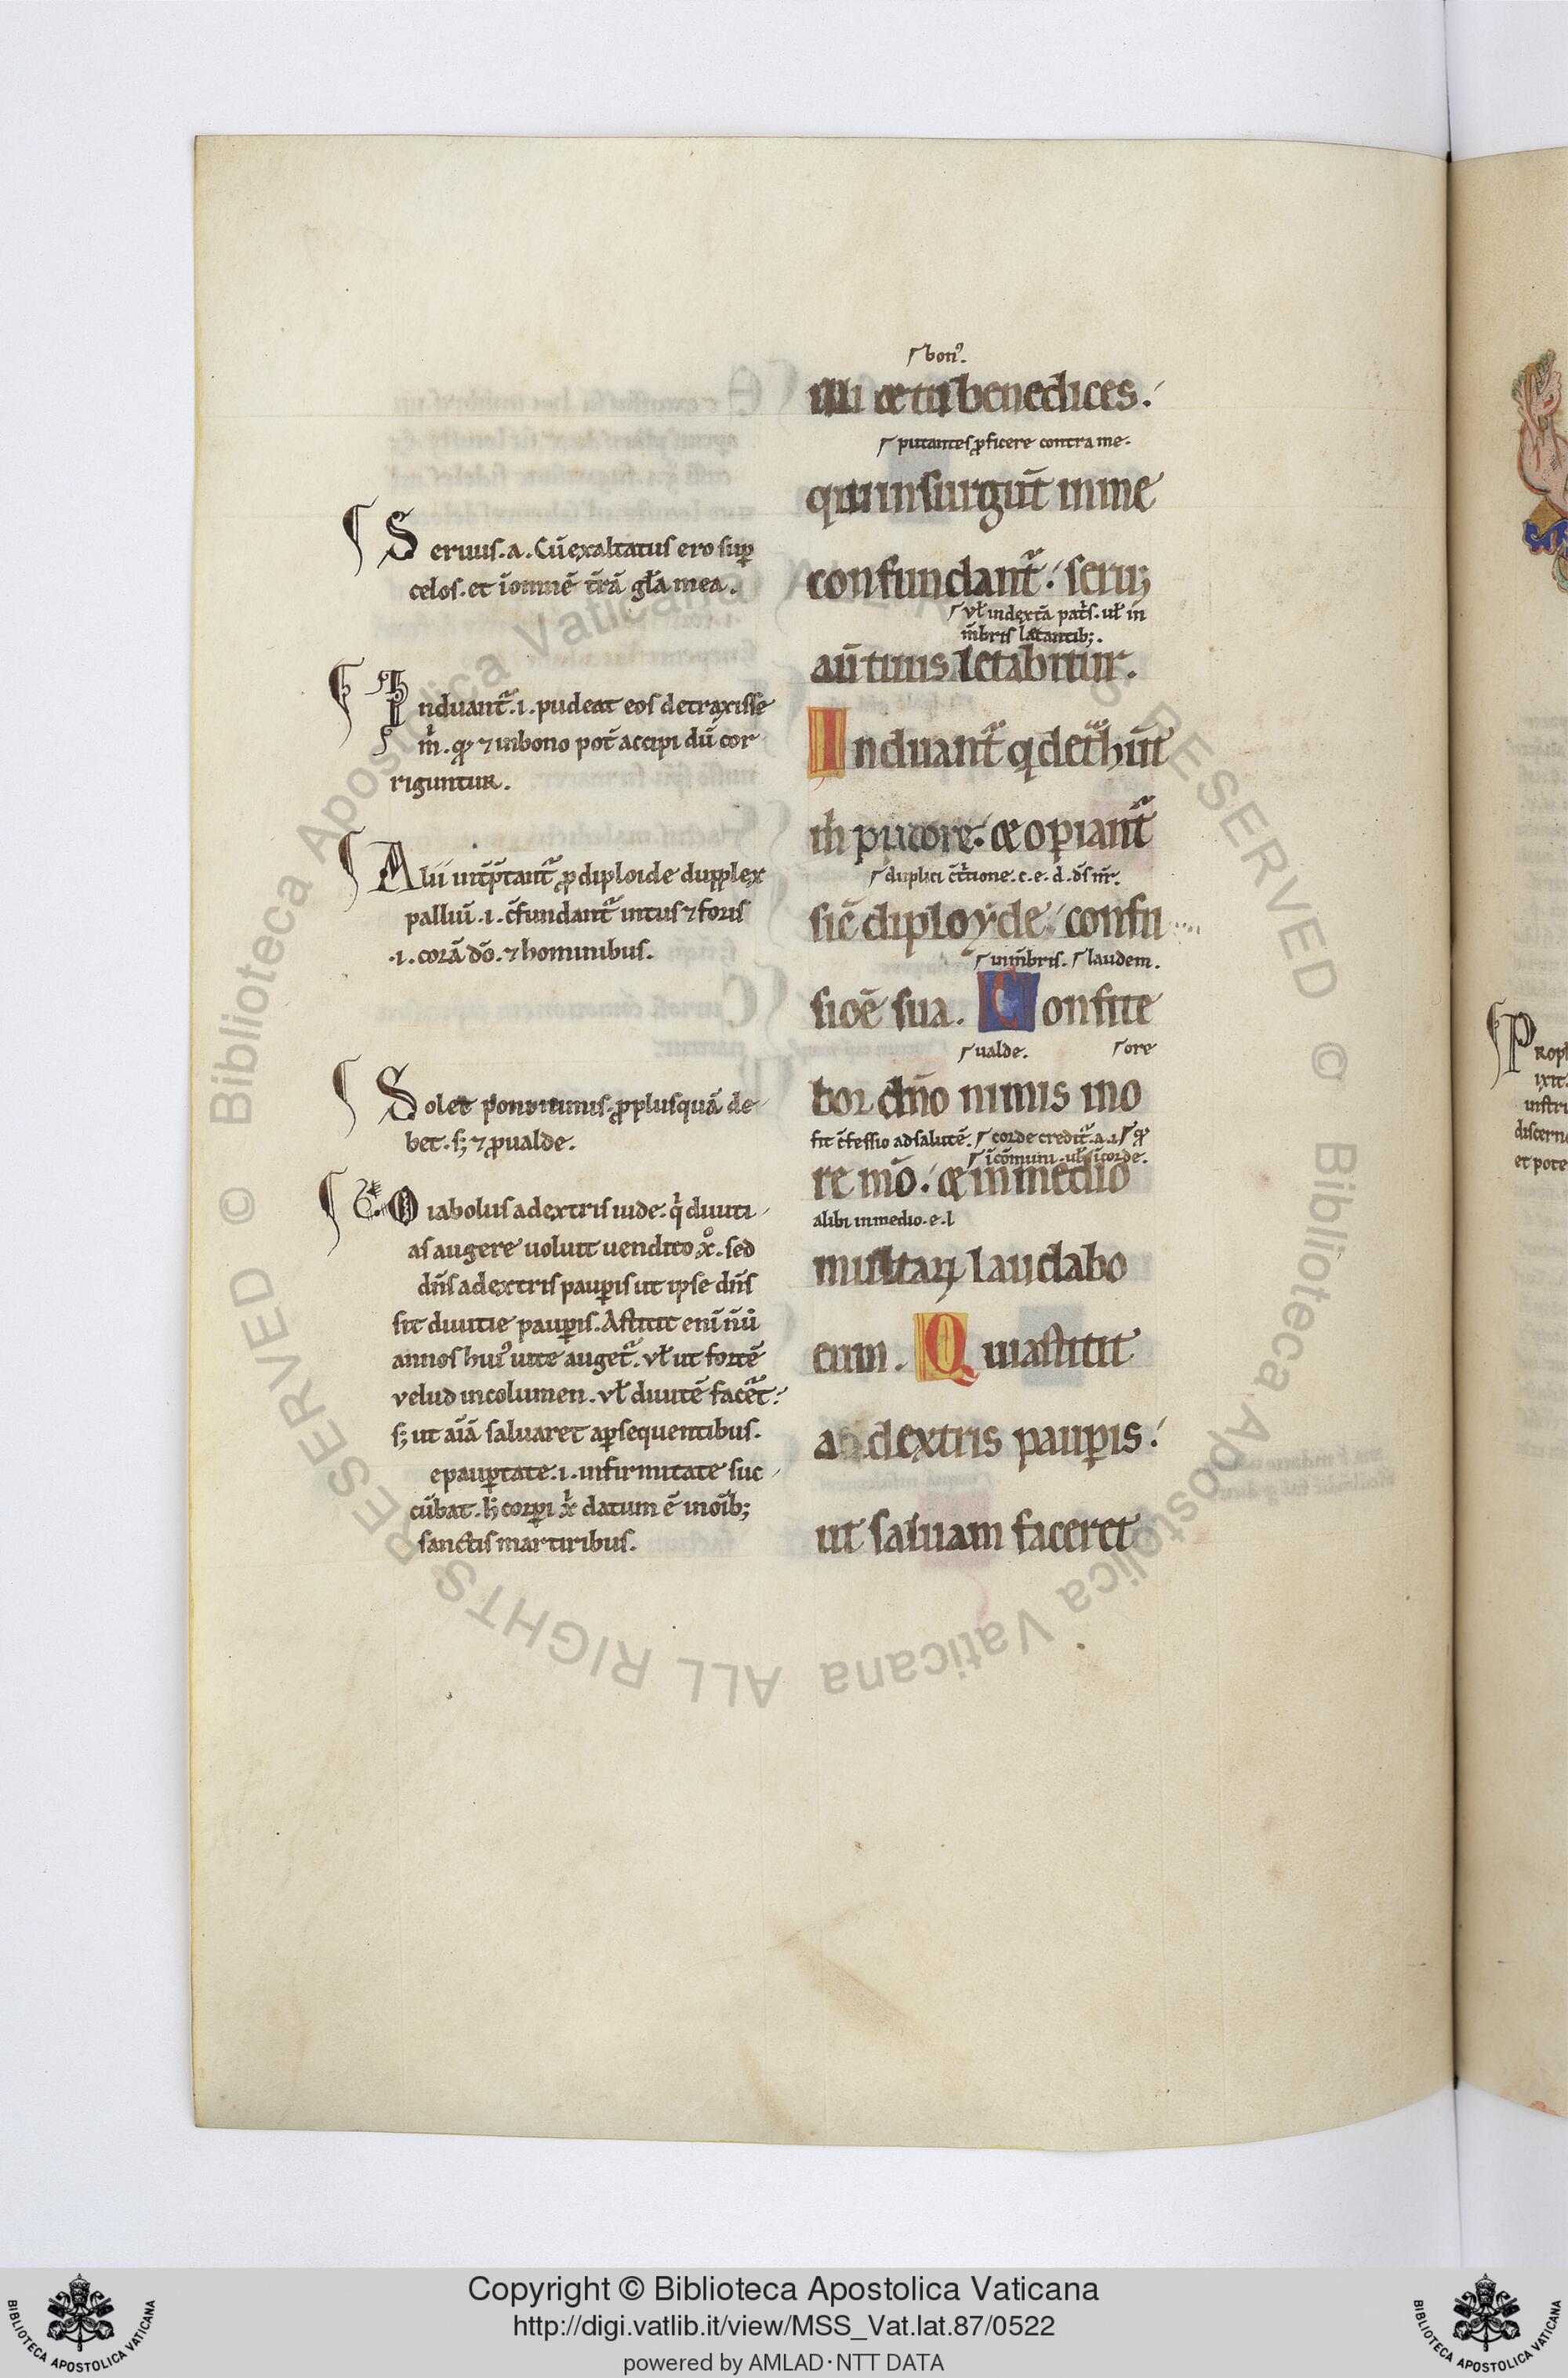 Seruus .a. Cū exaltatus ero sup
celos. et ī omnē t̄rā gl̄a mea.
Induant̄. i. pudeat eos detraxisse
m̄. ꝙ ⁊ in bono pot̄ accipi dū cor
riguntur.
Alii int̄p̄tant̄ ꝓ diploide dupplex
palliū .i. c̄fundant̄ intus ⁊ foris
.i. corā dō. ⁊ hominibus.
Solet poni nimis ꝓ plusquā de
bet. sꝫ ⁊ ꝓ ualde.
Diabolus a dextris iude. q̄ diuiti
as augere uoluit uendito xͦ. sed
dn̄s a dextris pauꝑis ut ipse dn̄s
sit diuitie pauꝑis. Astitit enī n̄ ů
annos huiꝰ uite auget̄. vł ut fortē
velud incolumen. vł diuitē facēt:
sꝫ ut aīā saluaret a ꝑsequentibus.
e pauꝑtate .i. infirmitate suc
cūbat. corꝑi x̄ datum ē in oīb;
sanctis martiribus.
bonꝰ.
illi & tu benedices.
putantes ꝓficere contra me.
qui insurgūt in me
confundant̄. seruꝫ
vł in dext̄a pat̄s. uł in
m̄bris latantibꝫ.
aū tuus letabitur.
Induant̄ q̇ det̄hūt
m̄ pudore. & oꝑiant̄
duplici c̄t̄tione. c. e. d. ds̄ nr̄.
sic̄ diployde confu
in m̄bris. laudem.
sioē sua. Confite
ualde. ore
bor dn̄o nimis in o
fit c̄fessio ad salutē. corde credit̄ .a.i. ꝙ
ī cōmuni. uł ī corde.
re mō. & in medio
alibi in medio .e. l
multaꝝ laudabo
eum. Qui astitit
a dextris pauꝑis.
ut saluam faceret
Copyright © Biblioteca Apostolica Vaticana
http://digi.vatlib.it/view/MSS_Vat.lat.87/0522
powered by AMLAD·NTT DATA
BIBLIOTECA APOSTOLICA VATICANA
BIBLIOTECA APOSTOLICA VATICANA
© Biblioteca Apostolica Vaticana ALL RIGHTS RESERVED